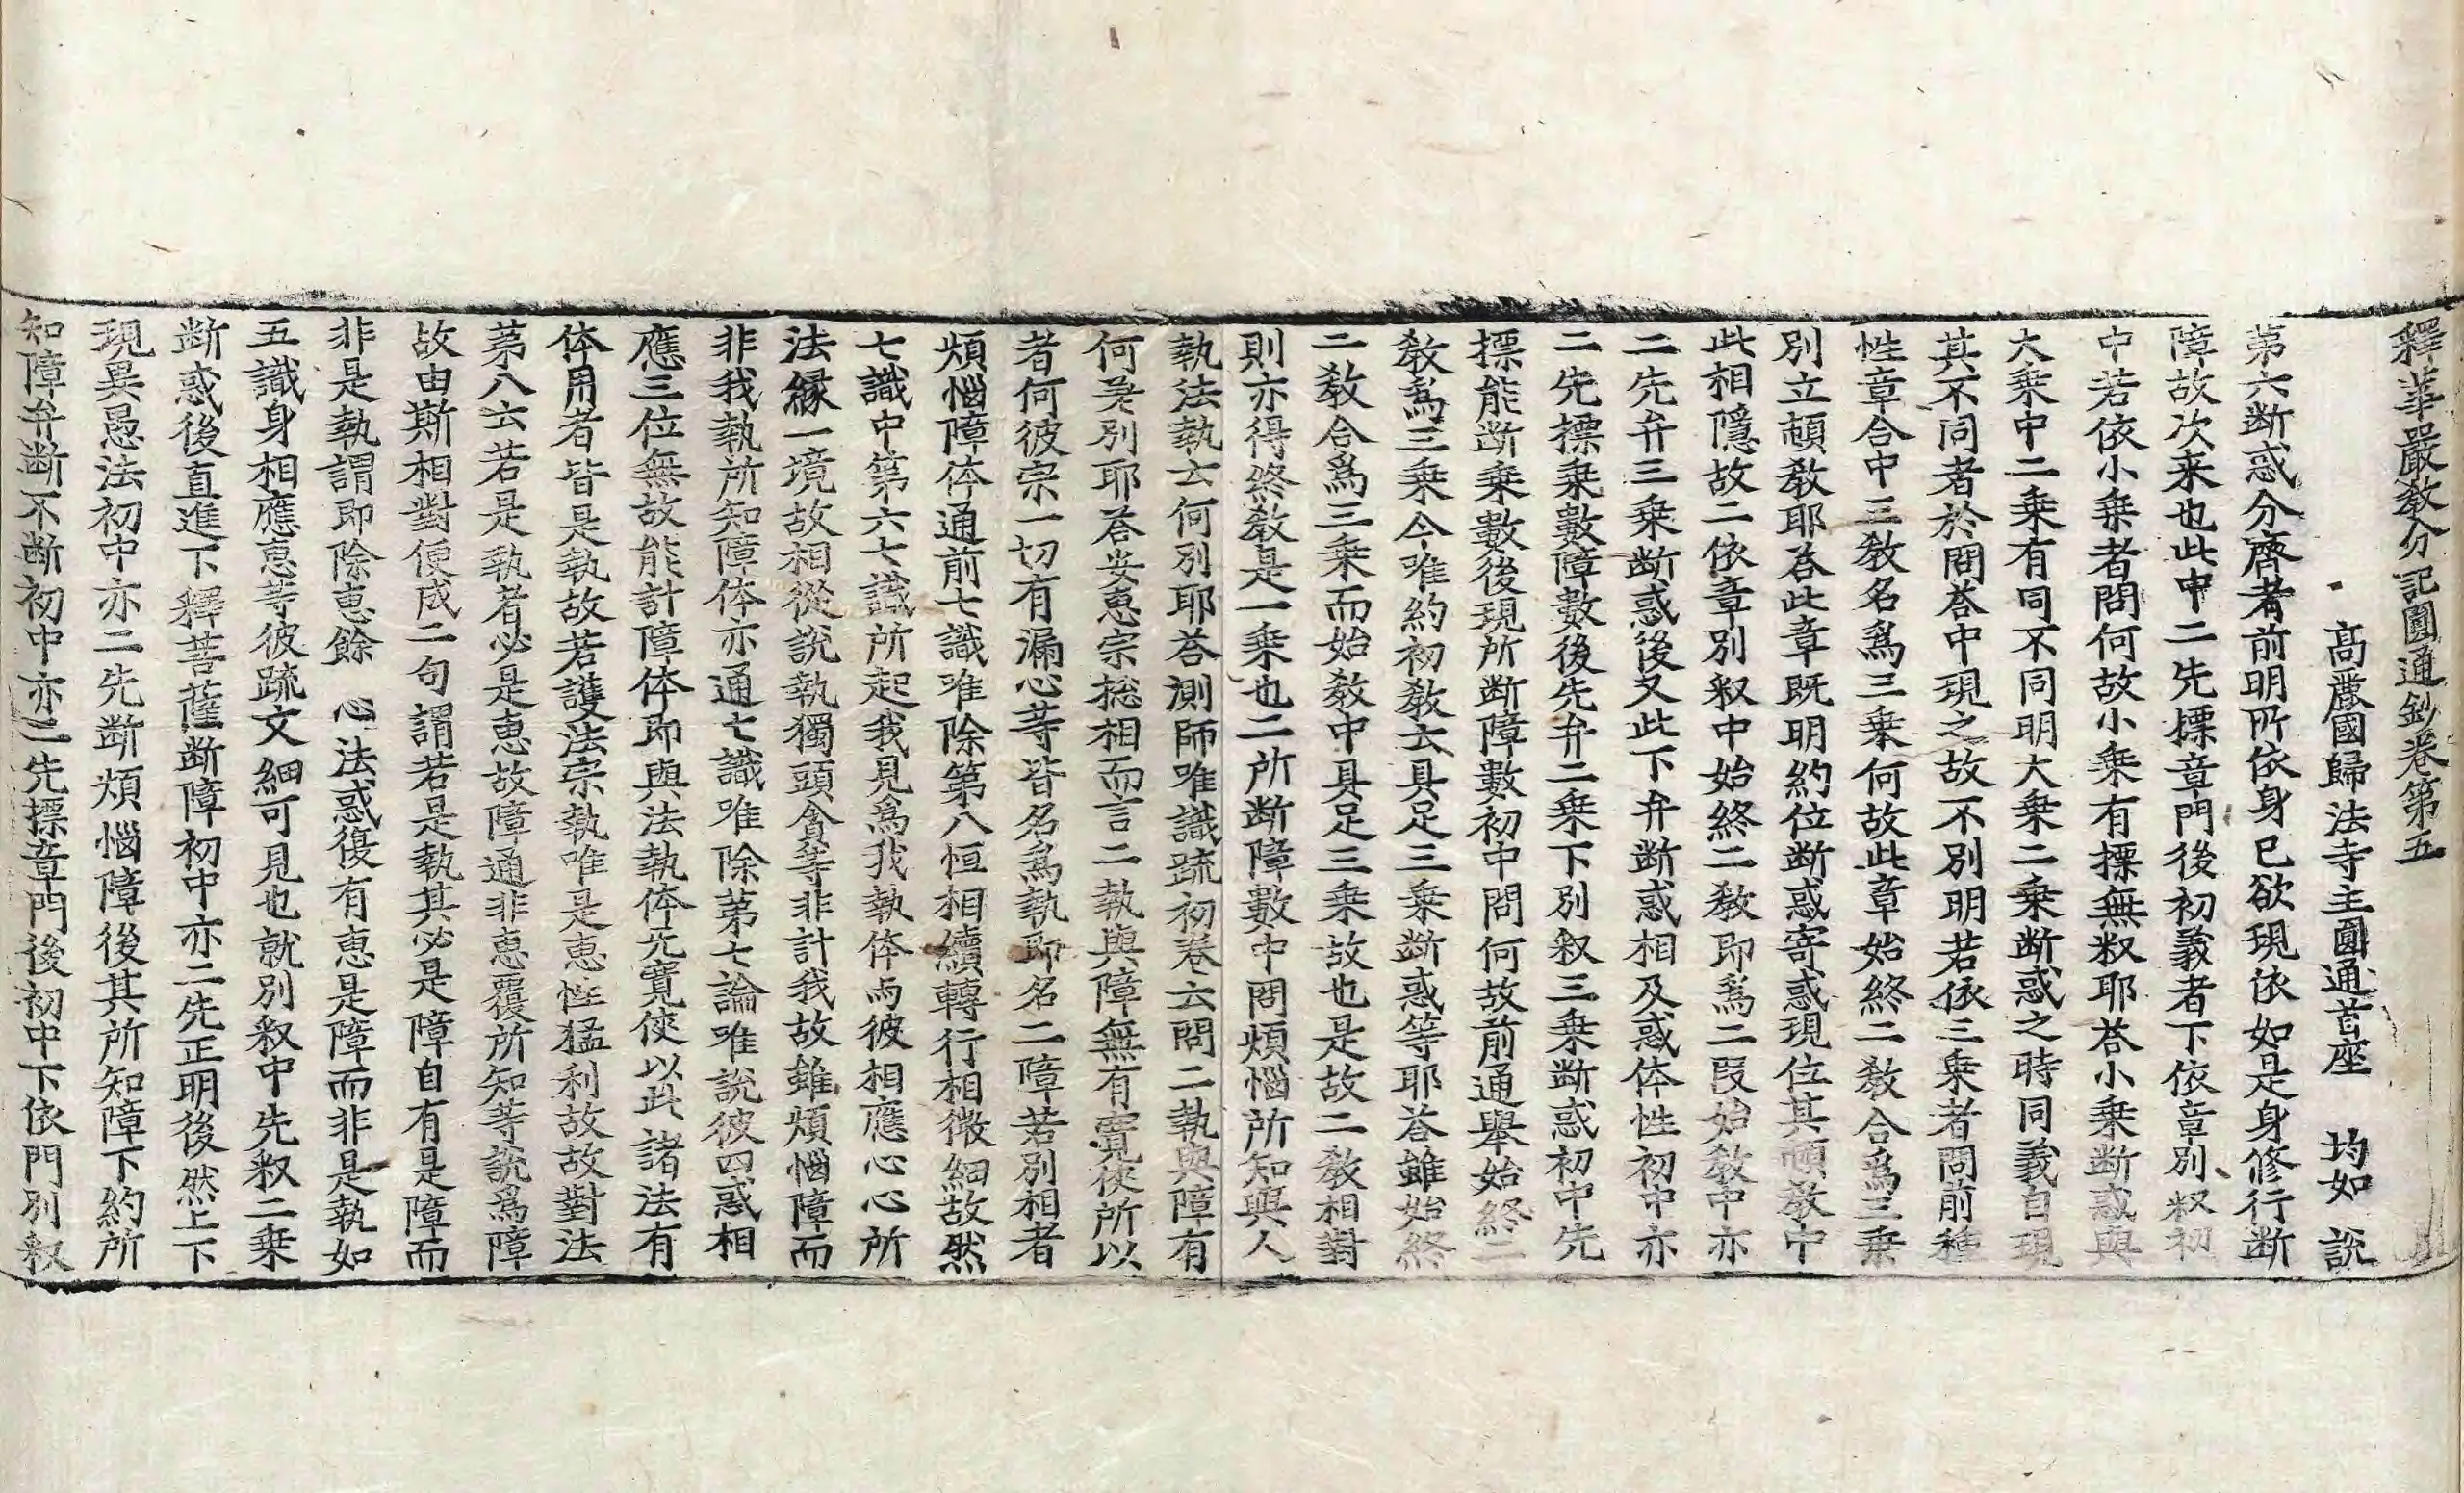 釋華嚴敎分記圓通鈔卷第五
高麗國歸法寺主圓通首座 均如 說
第六断惑分齊者前明所依身已欲現依如是身修行断
障故次来也此中二先摽章門後初義者下依章別釈初
中若依小乗者問何故小乗有摽無釈耶荅小乗断惑與
大乗中二乗有同不同明大乗二乗断惑之時同義自現
其不同者於問荅中現之故不別明若依三乗者問前種
性章合中三敎名爲三乗何故此章始終二敎合爲三乗
別立頓敎耶荅此章既明約位断惑寄惑現位其頓敎中
此相隱故二依章別釈中始終二敎即爲二段始敎中亦
二先弁三乗断惑後又此下弁断惑相及惑体性初中亦
二先摽乗數障數後先弁二乗下別釈三乗断惑初中先
摽能断乗數後現所断障數初中問何故前通舉始終二
敎爲三乗今唯約初敎云具足三乗断惑等耶荅雖始終
二敎合爲三乗而始敎中具足三乗故也是故二敎相對
則亦得終敎是一乗也二所断障數中問煩惱所知與人
執法執云何別耶荅測師唯識疏初卷云問二執與障有
何差別耶荅安惠宗捴相而言二執與障無有寬俠所以
者何彼宗一切有漏心等皆名爲執即名二障若別相者
煩惱障体通前七識唯除第八恒相續轉行相微細故然
七識中第六七識所起我見爲我執体与彼相應心心所
法縁一境故相從說執獨頭貪等非計我故雖煩惱障而
非我執所知障体亦通七識唯除第七論唯說彼四惑相
應三位無故能計障体即與法執体无寬俠以此諸法有
体用者皆是執故若護法宗執唯是惠性猛利故故對法
第八云若是執者必是惠故障通非惠覆所知等說爲障
故由斯相對便成二句謂若是執其必是障自有是障而
非是執謂即除惠餘 心法惑復有惠是障而非是執如
五識身相應惠等彼疏文細可見也就別釈中先釈二乗
断惑後直進下釋菩薩断障初中亦二先正明後然上下
現異愚法初中亦二先断煩惱障後其所知障下約所
知障弁断不断初中亦二先摽章門後初中下依門別釈